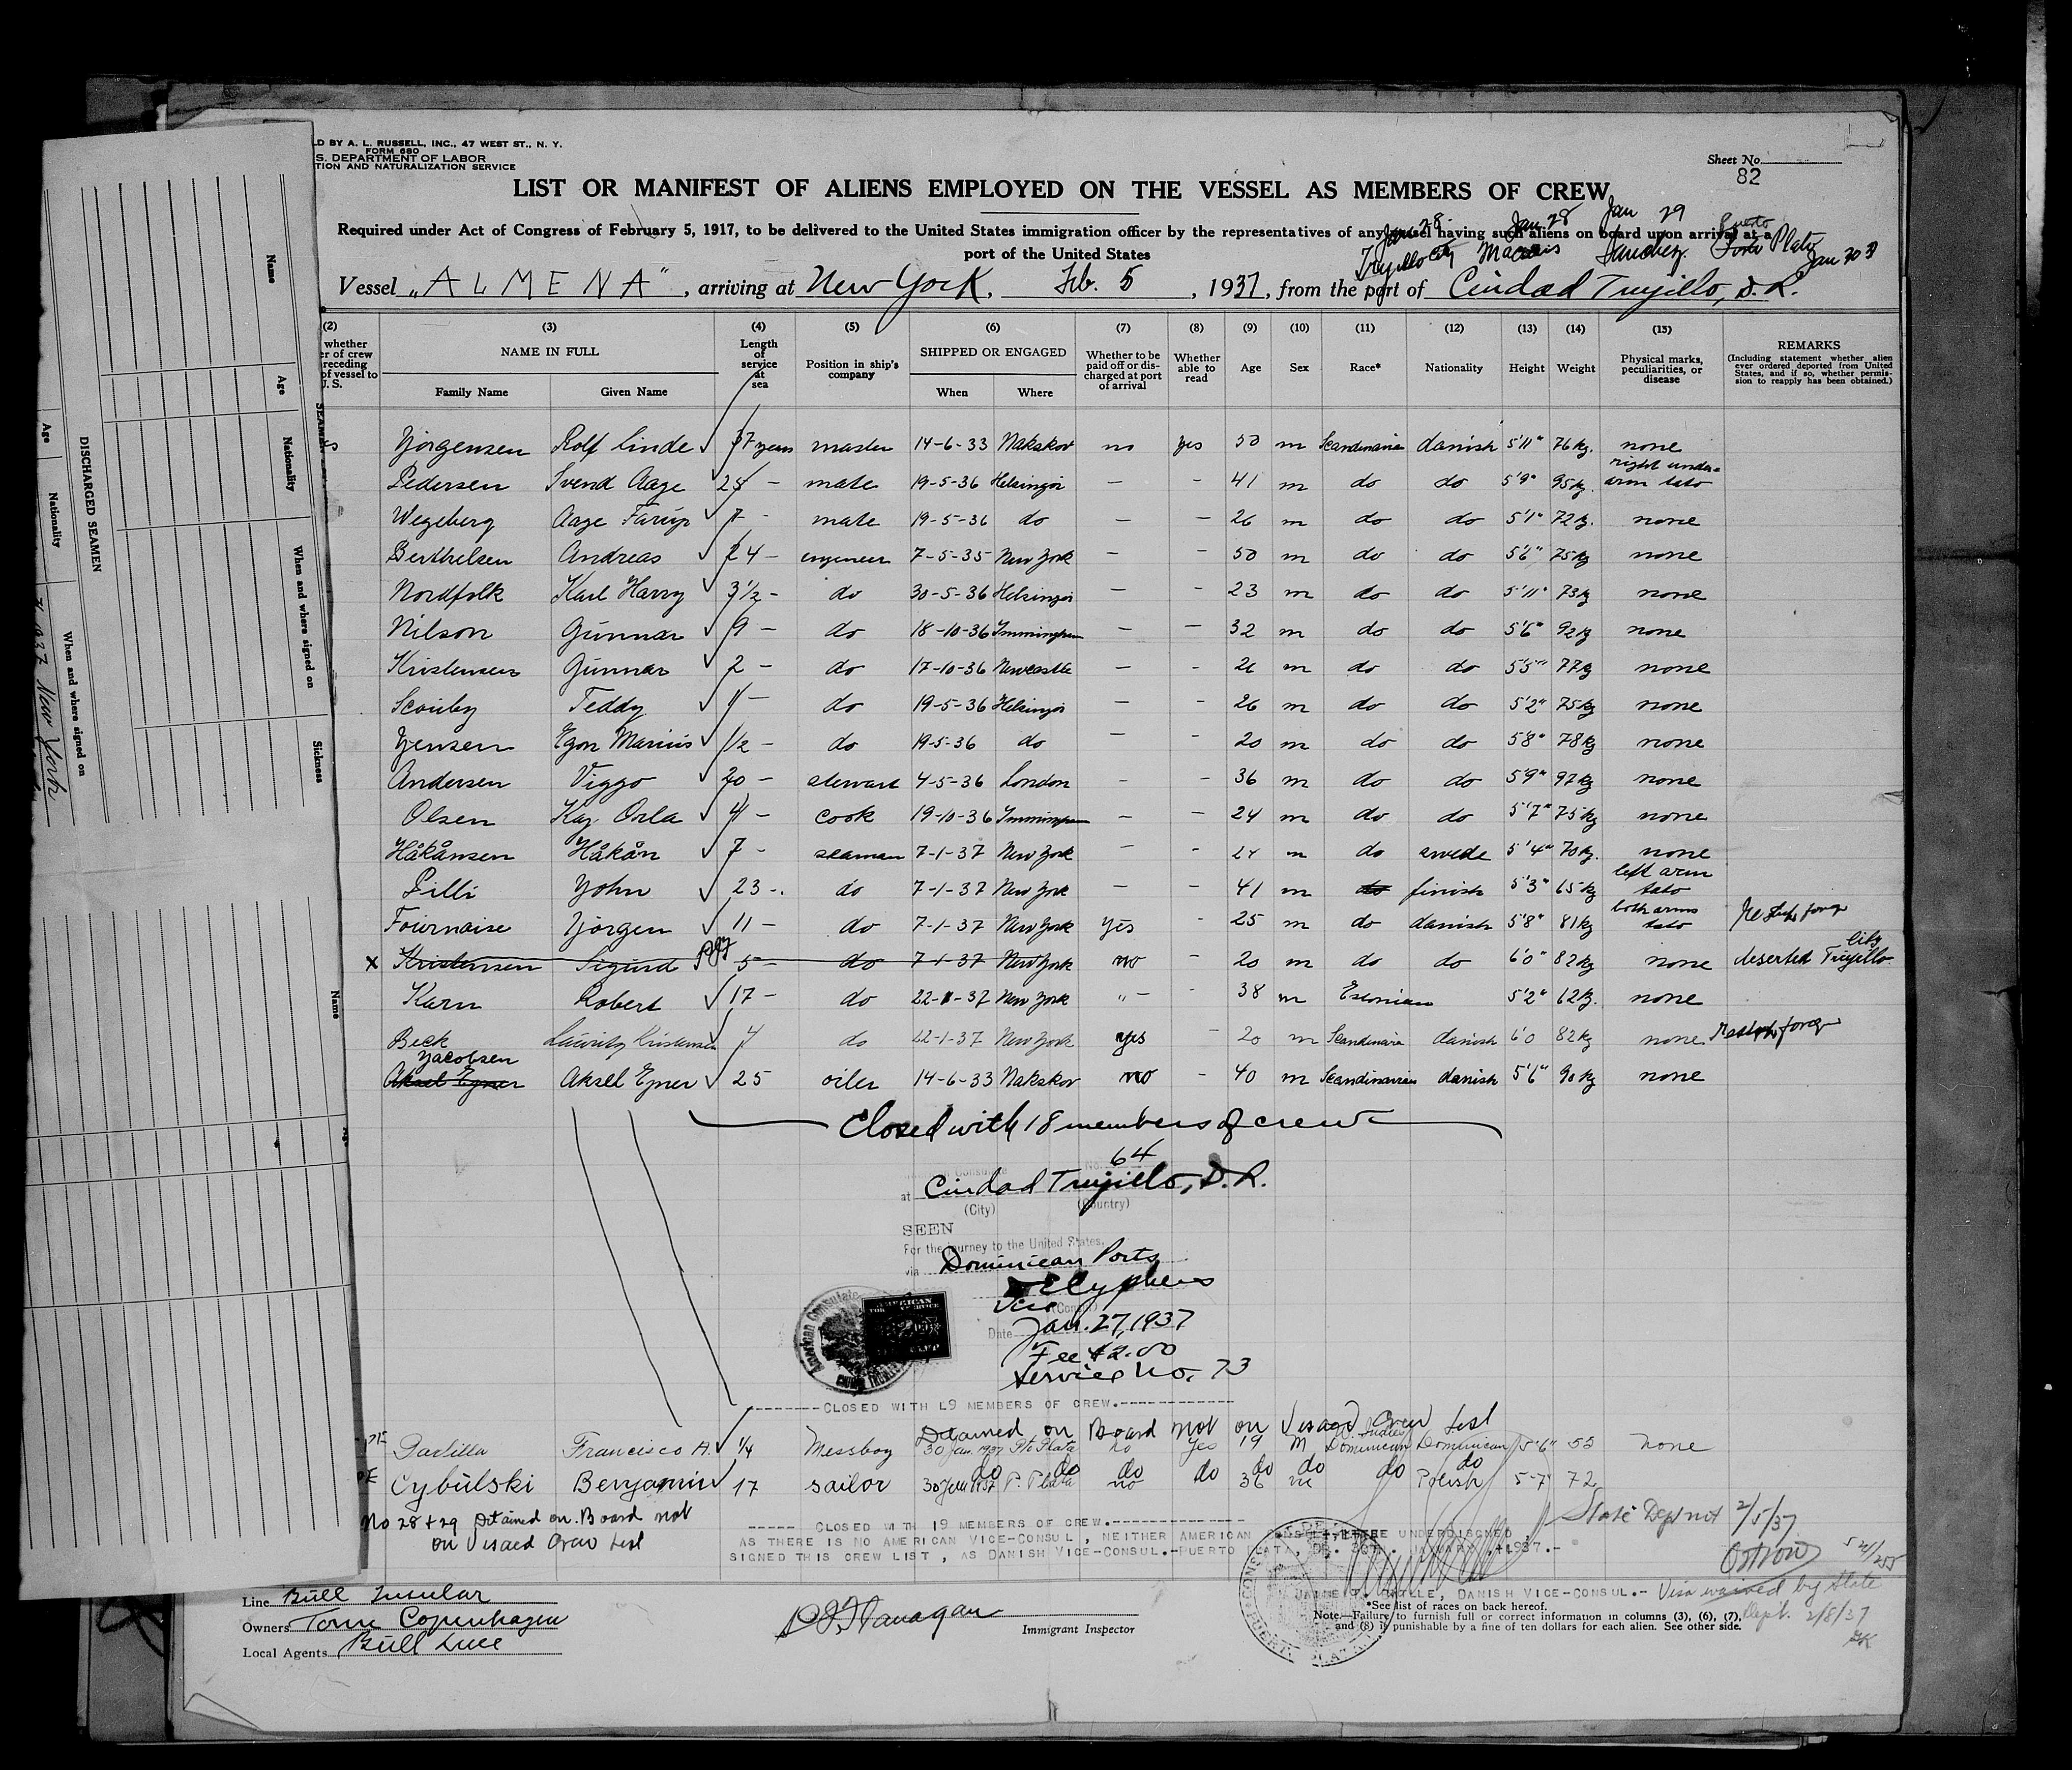 LD BY A. L. RUSSELL, INC., 47 WEST ST., N. Y.
FORM 680
S. DEPARTMENT OF LABOR
TION AND NATURALIZATION SERVICE
Sheet No.
82
LIST OR MANIFEST OF ALIENS EMPLOYED ON THE VESSEL AS MEMBERS OF CREW
Required under Act of Congress of February 5, 1917, to be delivered to the United States immigration officer by the representatives of any vessel having such aliens on board upon arrival at a
port of the United States
Jan 28 Jan 28 Jan 29 Puerto
Trujillo City Macoris Sanchez Plata Jan 30
Vessel "ALMENA", arriving at New York, Feb. 5, 1937, from the port of Ciudad Trujillo, D.R.
(2) (3) (4) (5) (6) (7) (8) (9) (10) (11) (12) (13) (14) (15)
whether
r of crew
receding
of vessel to
U. S.
NAME IN FULL
Family Name Given Name
Length of service at sea
Position in ship's company
SHIPPED OR ENGAGED
When Where
Whether to be paid off or discharged at port of arrival
Whether able to read
Age Sex Race* Nationality Height Weight
Physical marks, peculiarities, or disease
REMARKS
(Including statement whether alien ever ordered deported from United States, and if so, whether permission to reapply has been obtained.)
Yjorgensen Rolf Linde 37 years master 14-6-33 Nakskov no yes 50 m Scandinavia danish 5'11" 76 kg. none
Pedersen Svend Aage 25 - mate 19-5-36 Helsingör — - 41 m do do 5'9" 95 kg. right under arm tato
Wegeberg Aage Farup 7 - mate 19-5-36 do — — 26 m do do 5'1" 72 kg. none
Berthelsen Andreas 24 - engineer 7-5-35 New York — - 50 m do do 5'6" 75 kg none
Nordfolk Karl Harry 3 1/2 - do 30-5-36 Helsingör — - 23 m do do 5'11" 73 kg none
Nilson Gunnar 9 - do 18-10-36 Immingham — — 32 m do do 5'6" 92 kg none
Kristensen Gunnar 2 - do 17-10-36 Newcastle — - 26 m do do 5'5" 77 kg none
Scouby Teddy 4 - do 19-5-36 Helsingör — - 26 m do do 5'2" 75 kg none
Yensen Egon Marius 1/2 - do 19-5-36 do — - 20 m do do 5'8" 78 kg none
Andersen Viggo 20 - steward 4-5-36 London - - 36 m do do 5'9" 97 kg none
Olsen Kay Orla 4 - cook 19-10-36 Immingham — — 24 m do do 5'7" 75 kg none
Håkånsen Håkån 7 - seaman 7-1-37 New York — - 24 m do swede 5'4" 70 kg. none
Pilli Yohn 23 - do 7-1-37 New York — - 41 m do finish 5'3" 65 kg left arm tato
Fournaise Yjörgen 11 - do 7-1-37 New York yes - 25 m do danish 5'8" 81 kg both arms tato
x Kristensen Sigurd 5 - do 7-1-37 New York no - 20 m do do 6'0" 82 kg none deserted Trujillo City
Karu Robert 17 - do 22-1-37 New York "- - 38 m Estonian 5'2" 62 kg. none
Beck Lauritz Kristensen 4 do 22-1-37 New York yes - 20 m Scandinavia danish 6'0 82 kg none
Yacobsen
Aksel Ejner Aksel Ejner 25 oiler 14-6-33 Nakskov no - 40 m Scandinavian danish 5'6" 90 kg none
Closed with 18 members of crew
No. 64
at Ciudad Trujillo, D.R.
(City) (Country)
SEEN
For the journey to the United States,
via Dominican Ports
Vice (Consul)
Date Jan. 27, 1937
Fee $2.00
Service No. 73
--------CLOSED WITH L9 MEMBERS OF CREW.-------------
Detained on Board not on Visaed Crew List
Francisco A. 1/4 Messboy 30 Jan. 1937 Pto Plata no Yes 19 M Dominican Dominican 5'6" 55 none
do do do do do do do do
Cybulski Benjamin 17 sailor 30 Jan 1937 P. Plata no 36 m Polish 5-7 72
No 28 + 29 Detained on Board not
on Visaed Crew List
State Dept not 2/5/37
----- CLOSED WITH 19 MEMBERS OF CREW.---------------
AS THERE IS NO AMERICAN VICE-CONSUL, NEITHER AMERICAN CONSUL, THE UNDERDISGNED,
SIGNED THIS CREW LIST, AS DANISH VICE-CONSUL.-PUERTO PLATA, DR. 30TH. JANUARY, 1937.-
DANISH VICE-CONSUL.- Visa waived by State
Dept. 2/8/37
Line Bull Insular
Owners Torm Copenhagen
Local Agents Bull Line
Immigrant Inspector
*See list of races on back hereof.
Note.—Failure to furnish full or correct information in columns (3), (6), (7),
and (8) is punishable by a fine of ten dollars for each alien. See other side.
DISCHARGED SEAMEN
Name
Age
Nationality
When and where signed on
Sickness
Name
Age
Nationality
When and where signed on
1937 New York